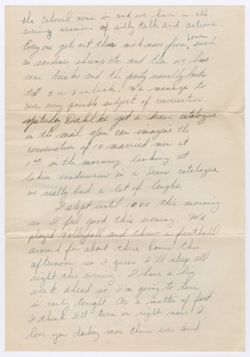 the Colonel come in and we have a
evening session of silly talk and actions.
Boy we get out there from home, such
as sardines, shrimp etc and then we have
some drinks and the party usually lasts
til 2 or 3 o'clock. We manage to
cover every possible subject of conversation.
Yesterday Dahlke got a Sears catalogue
in the mail. You can imagine the
conversation of 10 married men at
1:00 in the morning looking at
ladies underwear in a Sears catalogue
we really had a lot of laughs.
I slept until 10:00 this morning
so I feel good this evening. We
played volleyball and threw a football
around for about three hours this
afternoon so I guess I'll sleep all
right this evening. I have a big
week ahead so I'm going to turn
in early tonight. As a matter of fact
I think I'll turn in right now. I
love you darling more than ever and